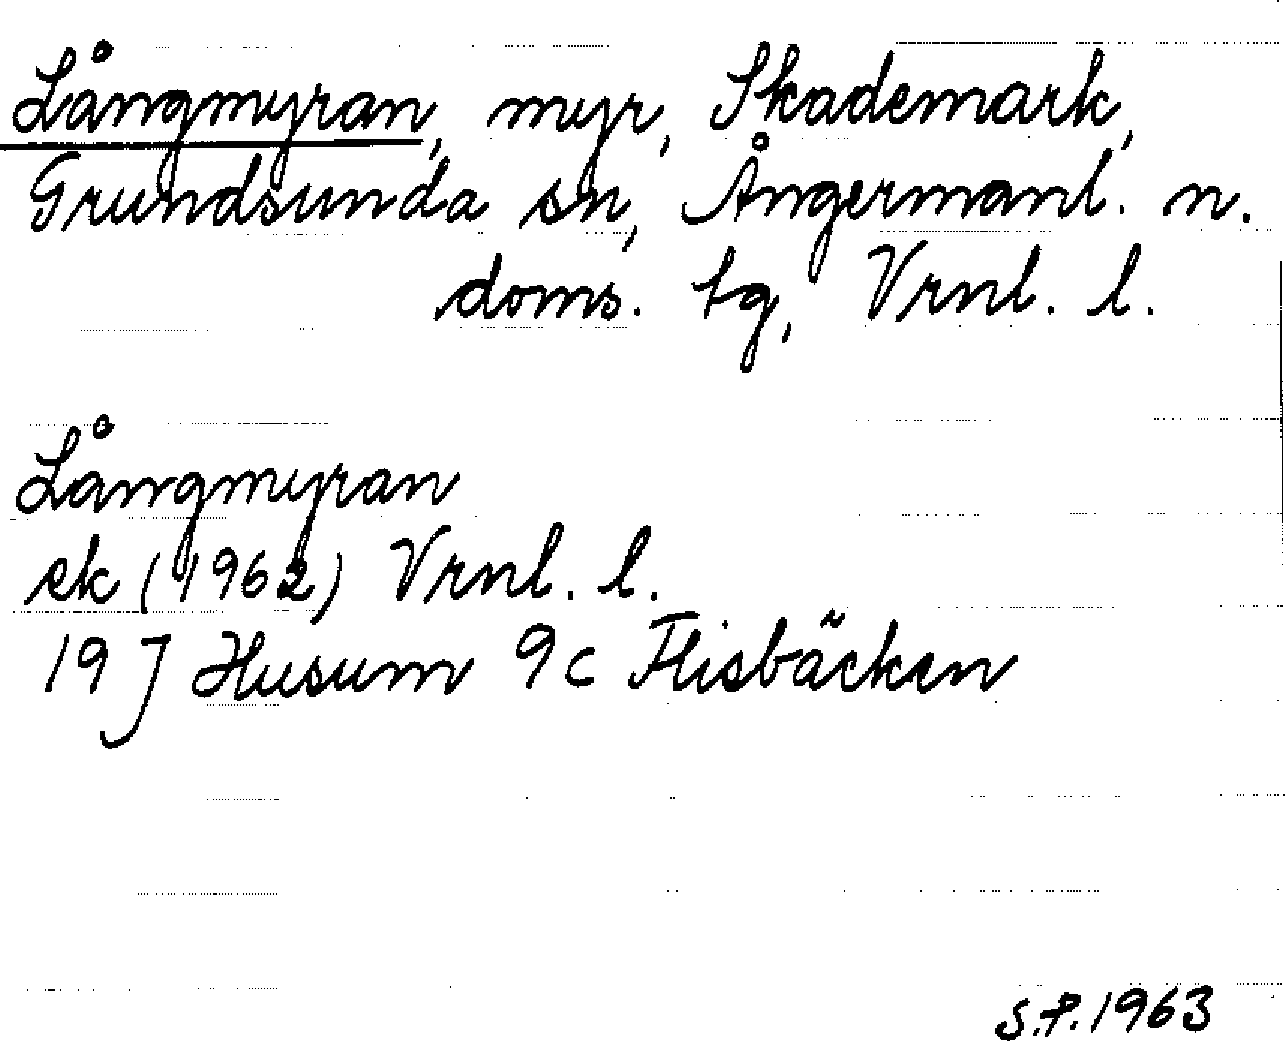 Långmyran, myr, Skademark,
Grundsunda sn, Ångermanl. n.
doms. tg, Vrnl. l.
Långmyran
ek (1962) Vrnl. l.
19 J Husum 9c Flisbäcken
S.P. 1963